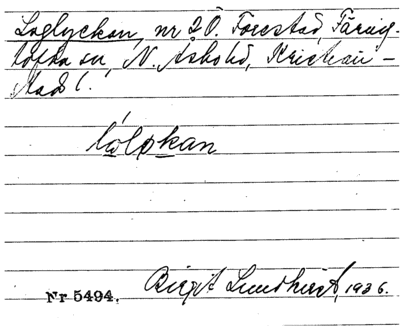 Loglyckan, nr 2 Ö. Torestad, Färing-
tofta sn, N. Åsbo hd, Kristian-
stad l.
lólpkan
Birgit Lundkvist, 1936.
Nr 5494.